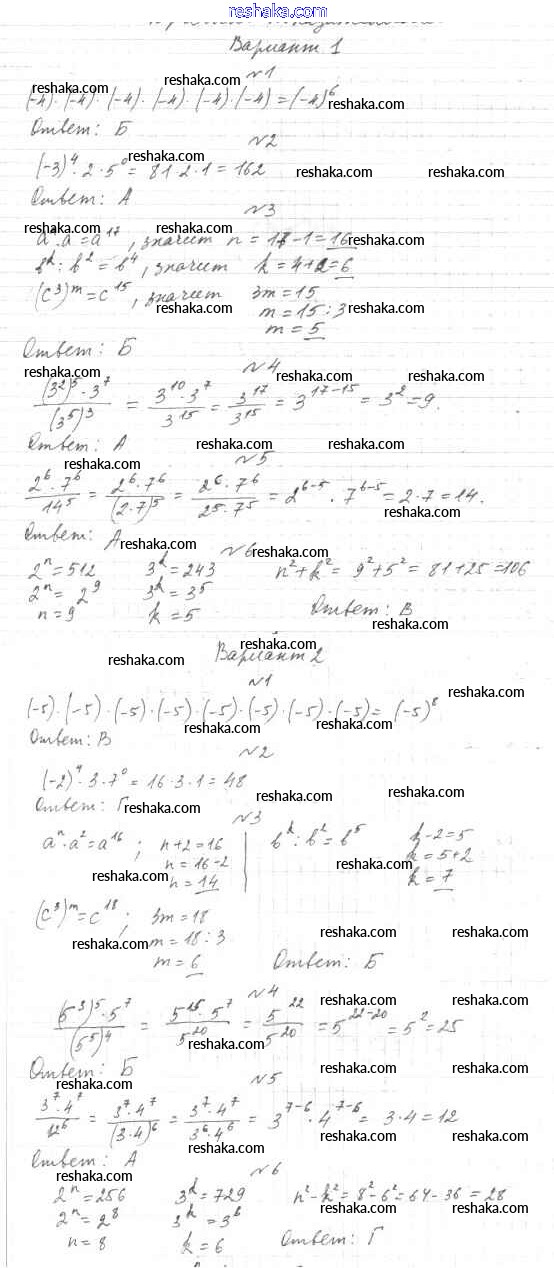 www.reshaka.com
Вариант 1
№1
(-4)·(-4)·(-4)·(-4)·(-4)·(-4)=(-4)⁶
Ответ: Б
№2
(-3)⁴·2·5⁰= 81·2·1=162
Ответ: А
№3
aⁿ·a=a¹⁷, значит n=17-1=16
bᵏ:b²=b⁴, значит k=4+2=6
(c³)ᵐ=c¹⁵, значит 3m=15
m=15:3
m=5
Ответ: Б
№4
(3²)⁵·3⁷/(3⁵)³ = 3¹⁰·3⁷/3¹⁵ = 3¹⁷/3¹⁵ = 3¹⁷⁻¹⁵ = 3²=9.
Ответ: А
№5
2⁶·7⁶/14⁵ = 2⁶·7⁶/(2·7)⁵ = 2⁶·7⁶/2⁵·7⁵ = 2⁶⁻⁵·7⁶⁻⁵=2·7=14.
Ответ: А
№6
2ⁿ=512 3ᵏ=243 n²+k²= 9²+5²= 81+25=106
2ⁿ= 2⁹ 3ᵏ=3⁵
n=9 k=5 Ответ: В
Вариант 2
№1
(-5)·(-5)·(-5)·(-5)·(-5)·(-5)·(-5)·(-5)=(-5)⁸
Ответ: В
№2
(-2)⁴·3·7⁰=16·3·1=48
Ответ: Г
№3
aⁿ·a²=a¹⁶; n+2=16 bᵏ:b²=b⁵ k-2=5
n=16-2 k=5+2
n=14 k=7
(c³)ᵐ=c¹⁸; 3m=18
m=18:3
m=6 Ответ: Б
№4
(5³)⁵·5⁷/(5⁵)⁴ = 5¹⁵·5⁷/5²⁰ = 5²²/5²⁰ =5²²⁻²⁰=5²=25
Ответ: Б
№5
3⁷·4⁷/12⁶ = 3⁷·4⁷/(3·4)⁶ = 3⁷·4⁷/3⁶·4⁶ = 3⁷⁻⁶·4⁷⁻⁶= 3·4=12
Ответ: А
№6
2ⁿ=256 3ᵏ=729 n²-k²=8²-6²=64-36=28
2ⁿ=2⁸ 3ᵏ=3⁶
n=8 k=6 Ответ: Г